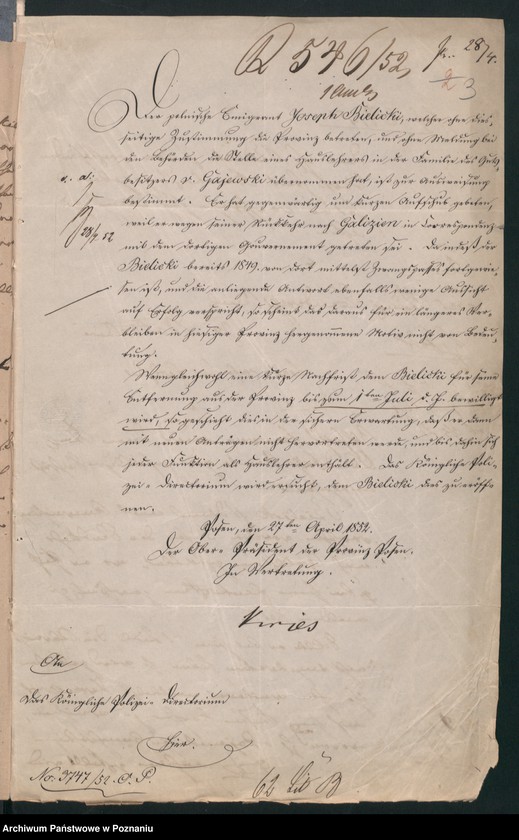 546/52 pr. 28/4.
3
Der polnische Emigrant Joseph Bielicki, welcher ohne dies-
seitige Zustimmung die Provinz betreten, und ohne Meldung bei
den Behörden die Stelle eines Hauslehrers in der Familie des Guts-
besitzers v. Gajewski übernommen hat, ist zur Ausweisung
bestimmt. Er hat gegenwärtig um kurzen Aufschub gebeten,
weil er wegen seiner Rückkehr nach Galizien in Correspondenz
mit dem dortigen Guvernement getreten sei. Da indeß der
Bielicki bereits 1849. von dort mittelst Zwangspasses fortgewie-
sen ist, und die anliegende Antwort ebenfalls wenige Aussicht
auf Erfolg verspricht, so scheint das daraus für ein längeres Ver-
bleiben in hiesiger Provinz hergenommene Motiv nicht von Bedeu-
tung.
Wenngleichwohl eine kurze Nachfrist dem Bielicki für seine
Entfernung aus der Provinz bis zum 1ten Juli d. J. bewilligt
wird, so geschieht dies in der sichern Erwartung, daß er dann
mit neuen Anträgen nicht hervortreten werde, und bis dahin sich
jeder Funktion als Hauslehrer enthält. Das Königliche Poli-
zei-Directorium wird ersucht, dem Bielicki dies zu eröff-
nen.
Posen, den 27ten April 1852.
Der Ober-Präsident der Provinz Posen.
In Vertretung.
28/4 52
An
Das Königliche Polizei-Directorium
Hier.
No. 3747/52. O. P.
62 B
Archiwum Państwowe w Poznaniu